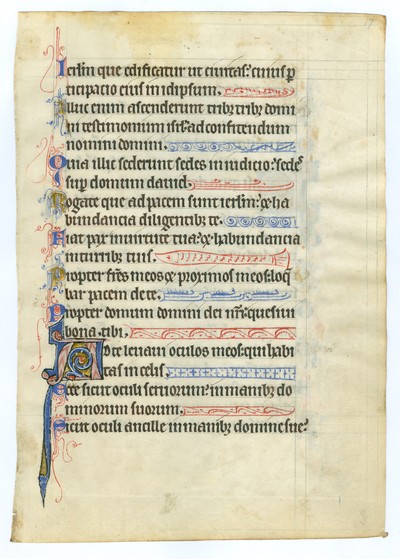 Ierlm que edificatur ut ciuitas: cuius p
ticipacio eius in idipsum.
Illuc enim ascenderunt tribz tribz domi
ni testimonium isrl ad confitendum
nomini domini.
Quia illic sederunt sedes in iudicio: sedes
sup domum dauid.
Rogate que ad pacem sunt ierlm: & ha
bundancia diligentibz te.
Fiat pax in uirtute tua: & habundancia
in turribz tuis.
Propter fres meos & proximos meos: loq
bar pacem de te.
Propter domum domini dei nri: quesiui
bona tibi.
Ad te leuaui oculos meos: qui habi
tas in celis.
Ecce sicut oculi seruorum: in manibz do
minorum suorum.
Sicut oculi ancille in manibz domine sue: